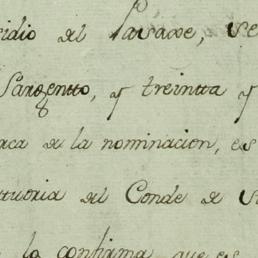 sidio del Parage, se
Sargentto, y treintta y
rca de la nominacion, es
ttutoria del Conde de
la confirma que es